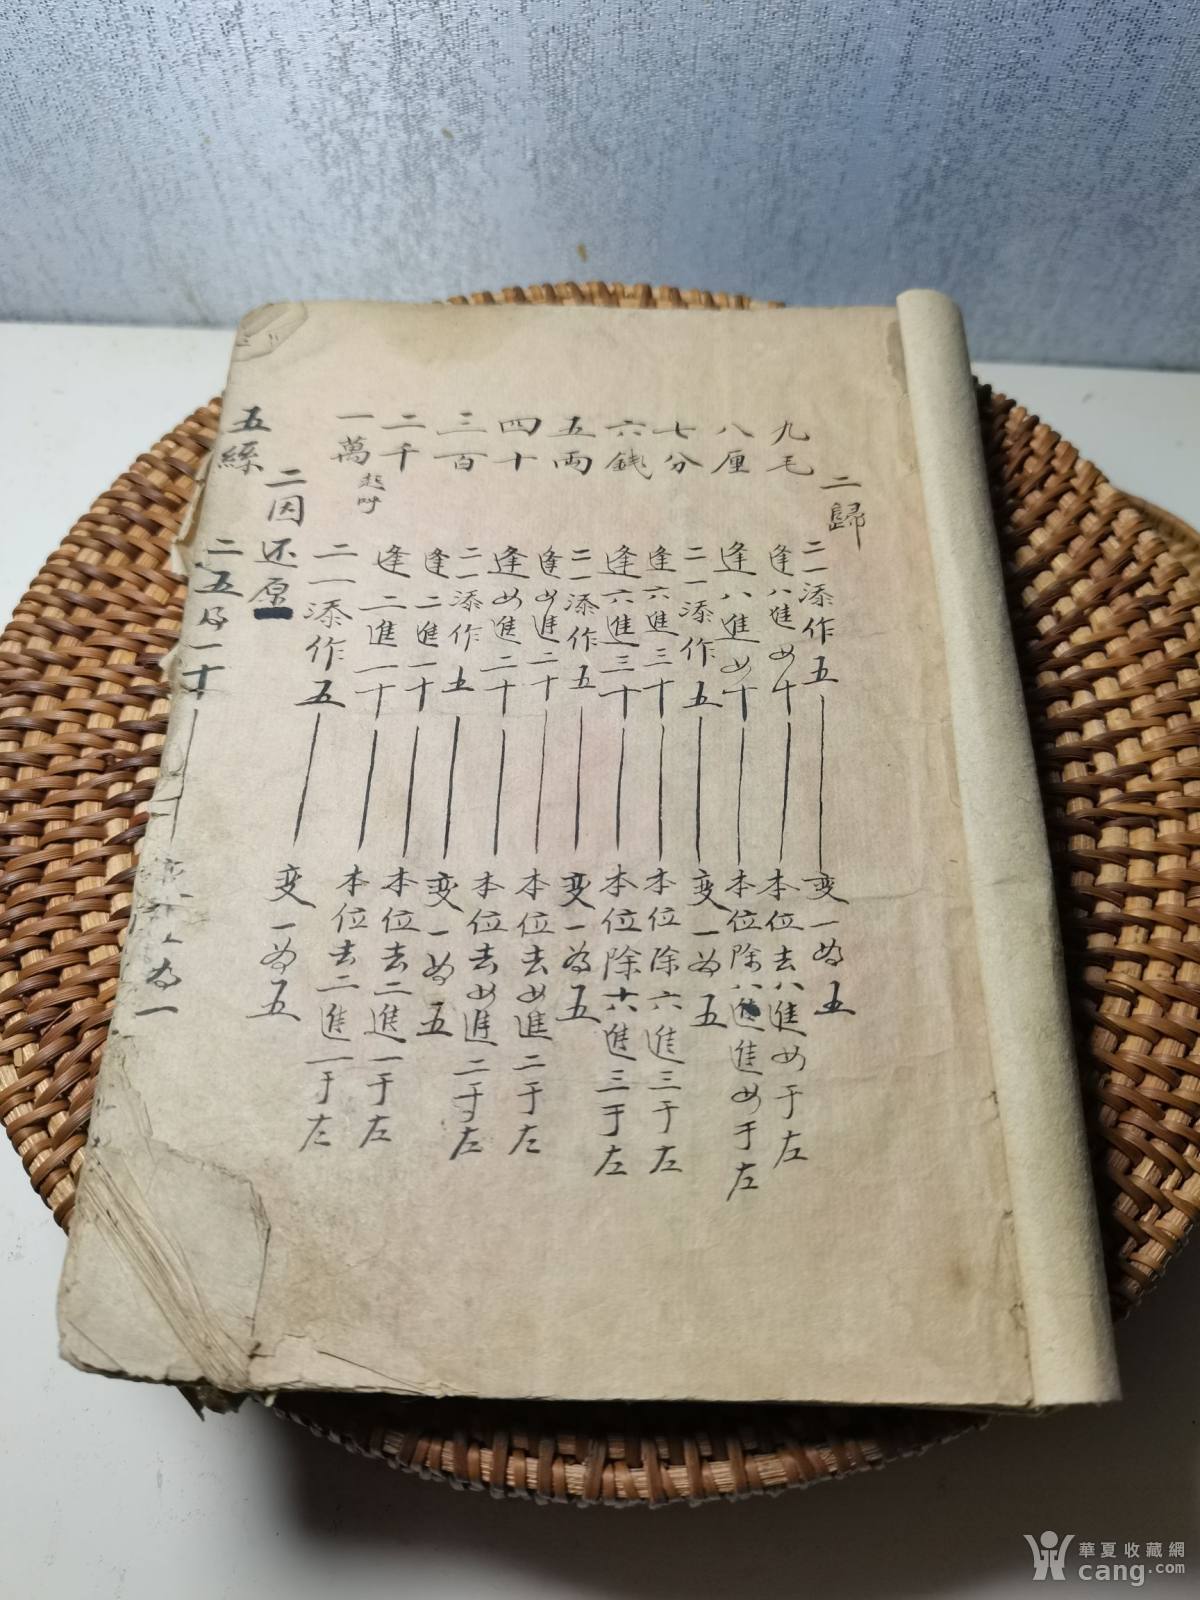 二歸
九毛
八厘
七分
六錢
五両
四十
三百
二千
一萬 起呼
二一添作五 变一为五
逢八進四十 本位去八進四于左
逢八進四十 本位除八進進四于左
二一添作五 变一为五
逢六進三十 本位除六進三于左
逢六進三十 本位除六進三于左
二一添作五 变一为五
逢四進二十 本位去四進二于左
逢四進二十 本位去四進二于左
二一添作五 变一为五
逢二進一十 本位去二進一于左
逢二進一十 本位去二進一于左
二一添作五 变一为五
二因还原
五絲
二五得一十 为一
華夏收藏網
cang.com